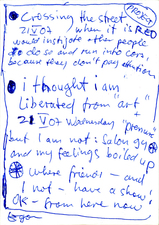 PROJECT
Crossing the street
21 V 07 when it is RED
would instigate other people
to do so and run into cars,
because they don't pay attention
i thought i am
liberated from "art"
21 V 07 Wednesday "pressure"
but I am not: Salon 99
and my feelings boiled up
where friends - and
I not - have a show,
OK - from here now